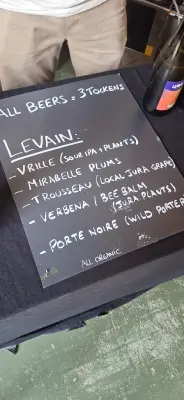 ALL BEERS = 3 TOCKENS
LEVAIN:
- VRILLE (SOUR IPA + PLANTS)
~ MIRABELLE PLUMS
~ TROUSSEAU (LOCAL JURA GRAPE)
- VERBENA / BEE BALM
(JURA PLANTS)
- PORTE NOIRE (WILD PORTER
ALL ORGANIC